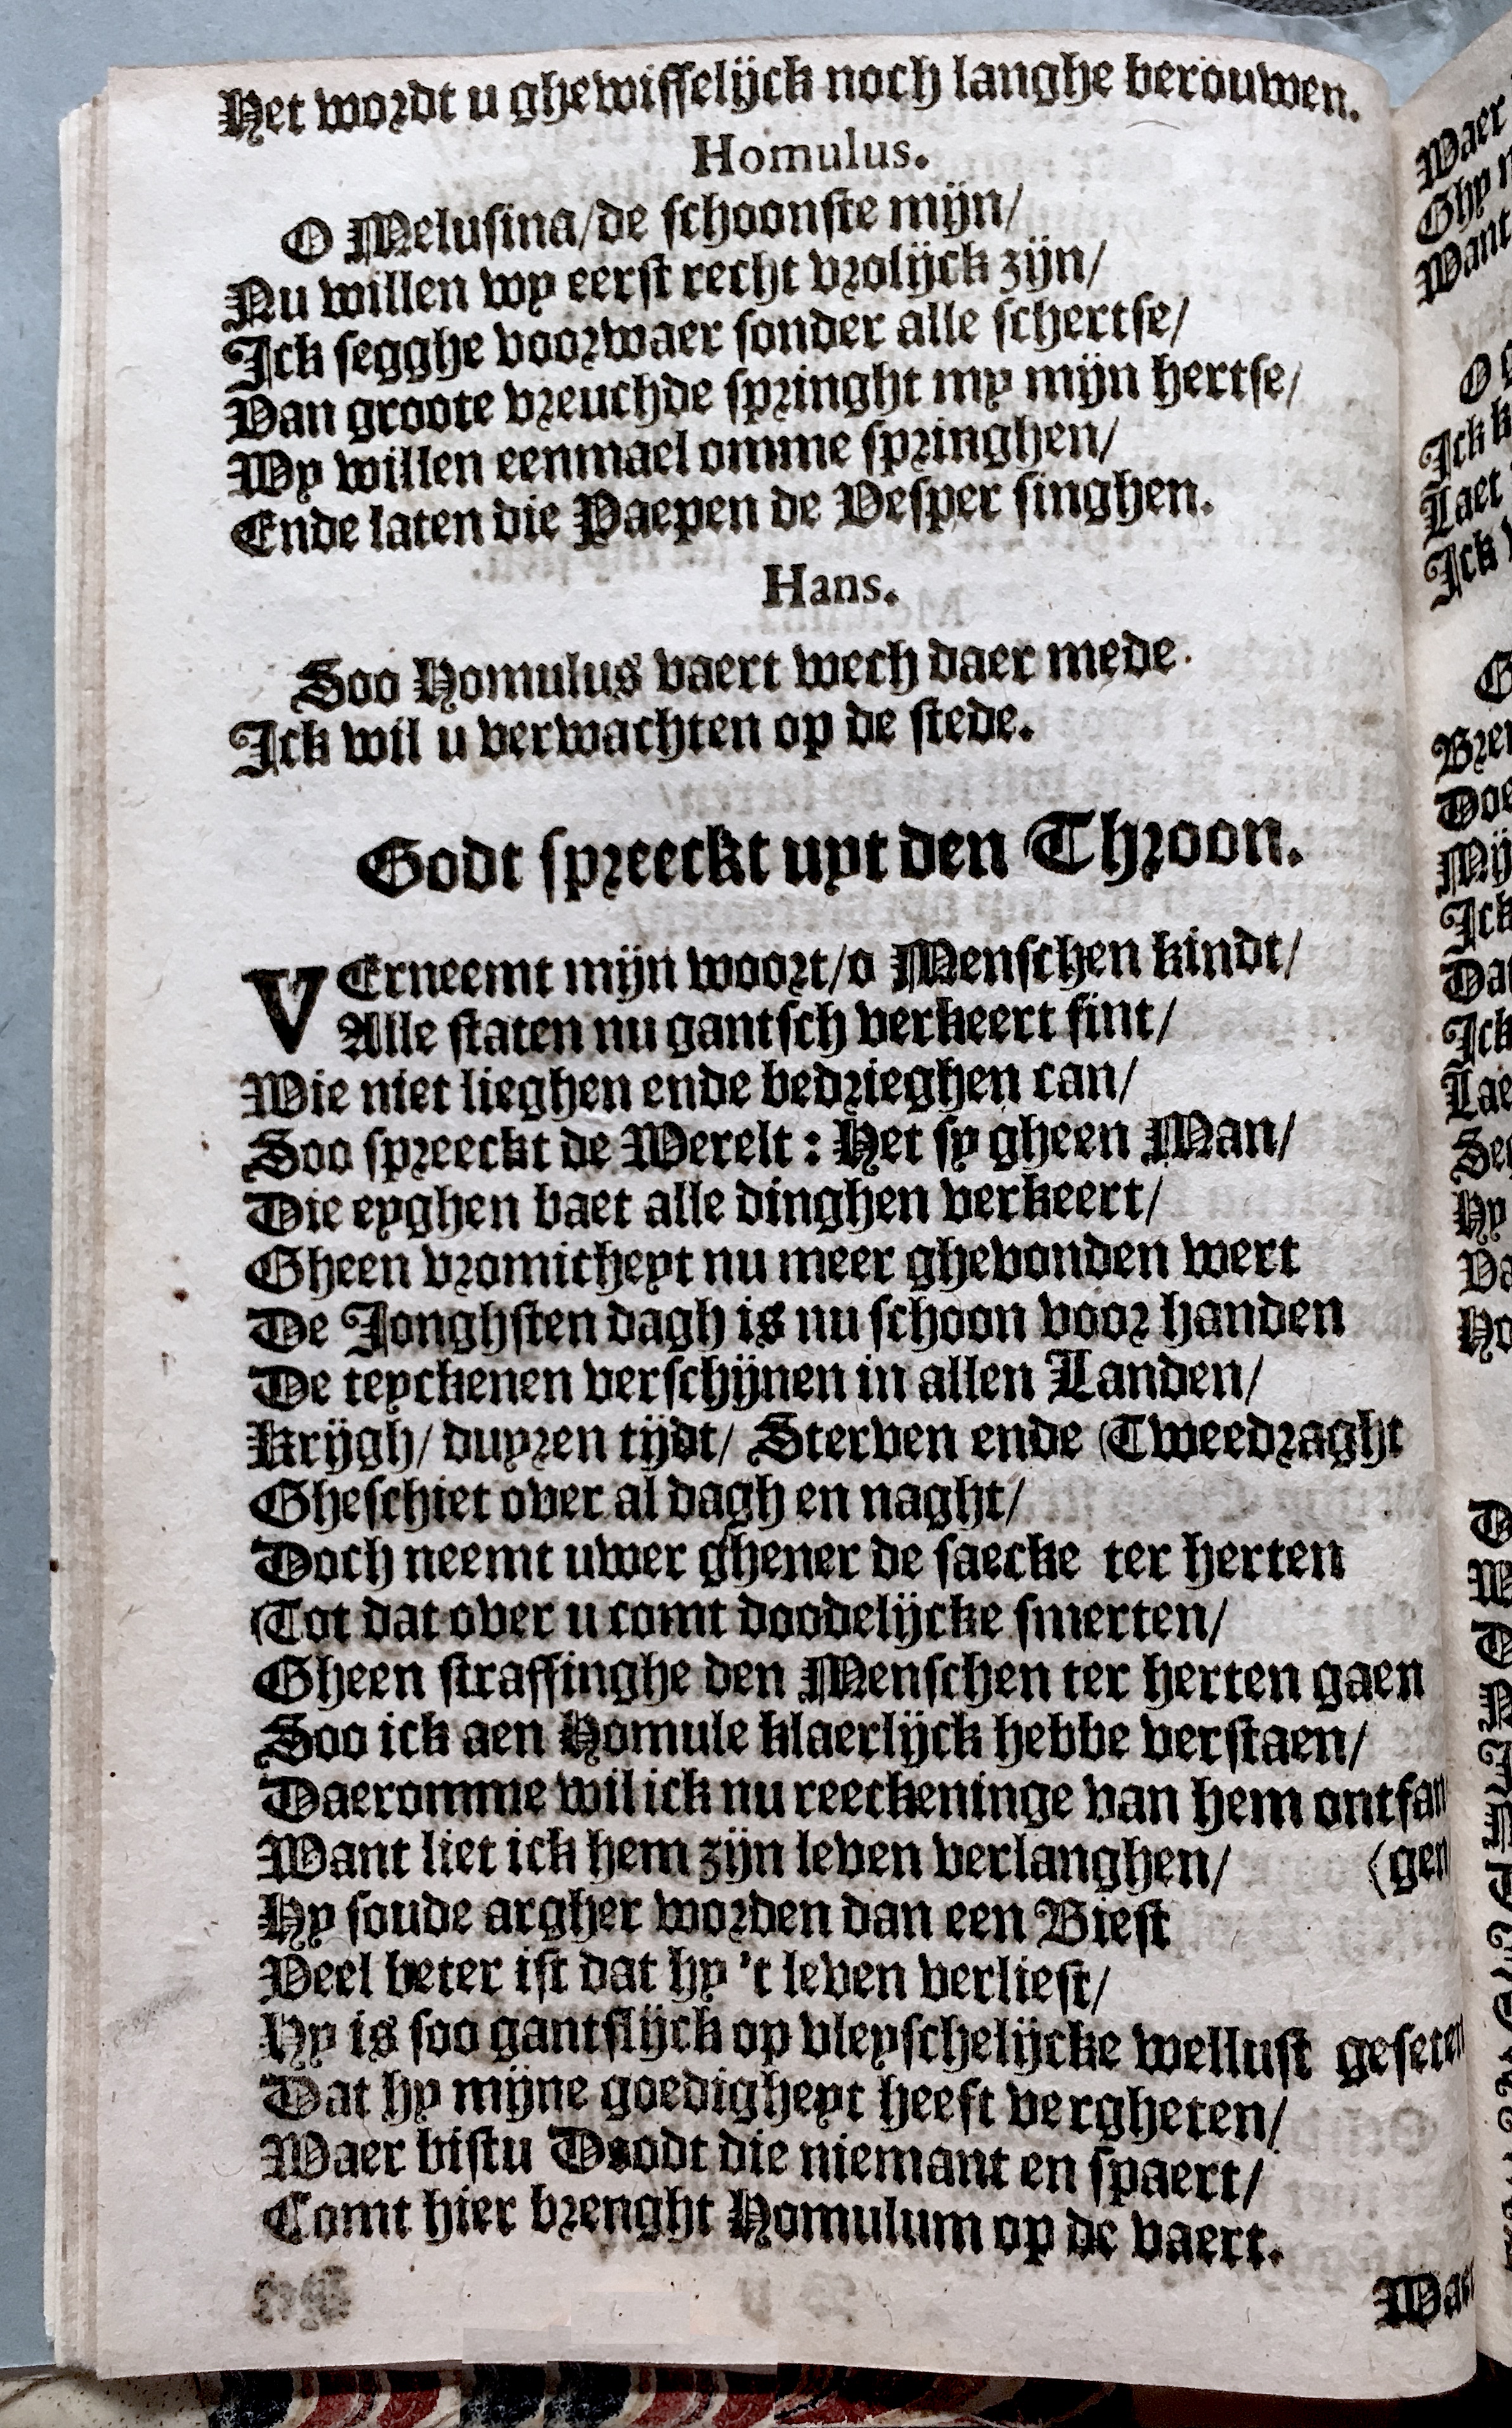 Het wordt u ghewisselijck noch langhe berouwen.
Homulus.
O Melusina/de schoonste mijn/
Nu willen wy eerst recht vrolijck zijn/
Ick segghe voorwaer sonder alle schertse/
Van groote vreuchde springht my mijn hertse/
Wy willen eenmael omme springhen/
Ende laten die Paepen de Vesper singhen.
Hans.
Soo Homulus vaert wech daer mede.
Ick wil u verwachten op de stede.
Godt spreeckt uyt den Throon.
VErneemt mijn woort/o Menschen kindt/
Alle staten nu gantsch verkeert sint/
Wie niet lieghen ende bedrieghen can/
Soo spreeckt de Werelt: Het sy gheen Man/
Die eyghen baet alle dinghen verkeert/
Gheen vromicheyt nu meer ghevonden wert
De Jonghsten dagh is nu schoon voor handen
De teyckenen verschijnen in allen Landen/
Krijgh/ duyren tijdt/ Sterven ende Tweedraght
Gheschiet over al dagh en naght/
Doch neemt uwer ghener de saecke ter herten
Tot dat over u comt doodelijcke smerten/
Gheen straffinghe den Menschen ter herten gaen
Soo ick aen Homule klaerlijck hebbe verstaen/
Daeromme wil ick nu reeckeninge van hem ontfan
Want liet ick hem zijn leven verlanghen/ (gen
Hy soude argher worden dan een Biest
Veel beter ist dat hy 't leven verliest/
Hy is soo gantslijck op vleyschelijcke wellust geseten
Dat hy mijne goedigheyt heeft vergheten/
Waer bistu Doodt die niemant en spaert/
Comt hier brenght Homulum op de vaert.
Waer
Ghy
Want
Ick
Laet
Ick